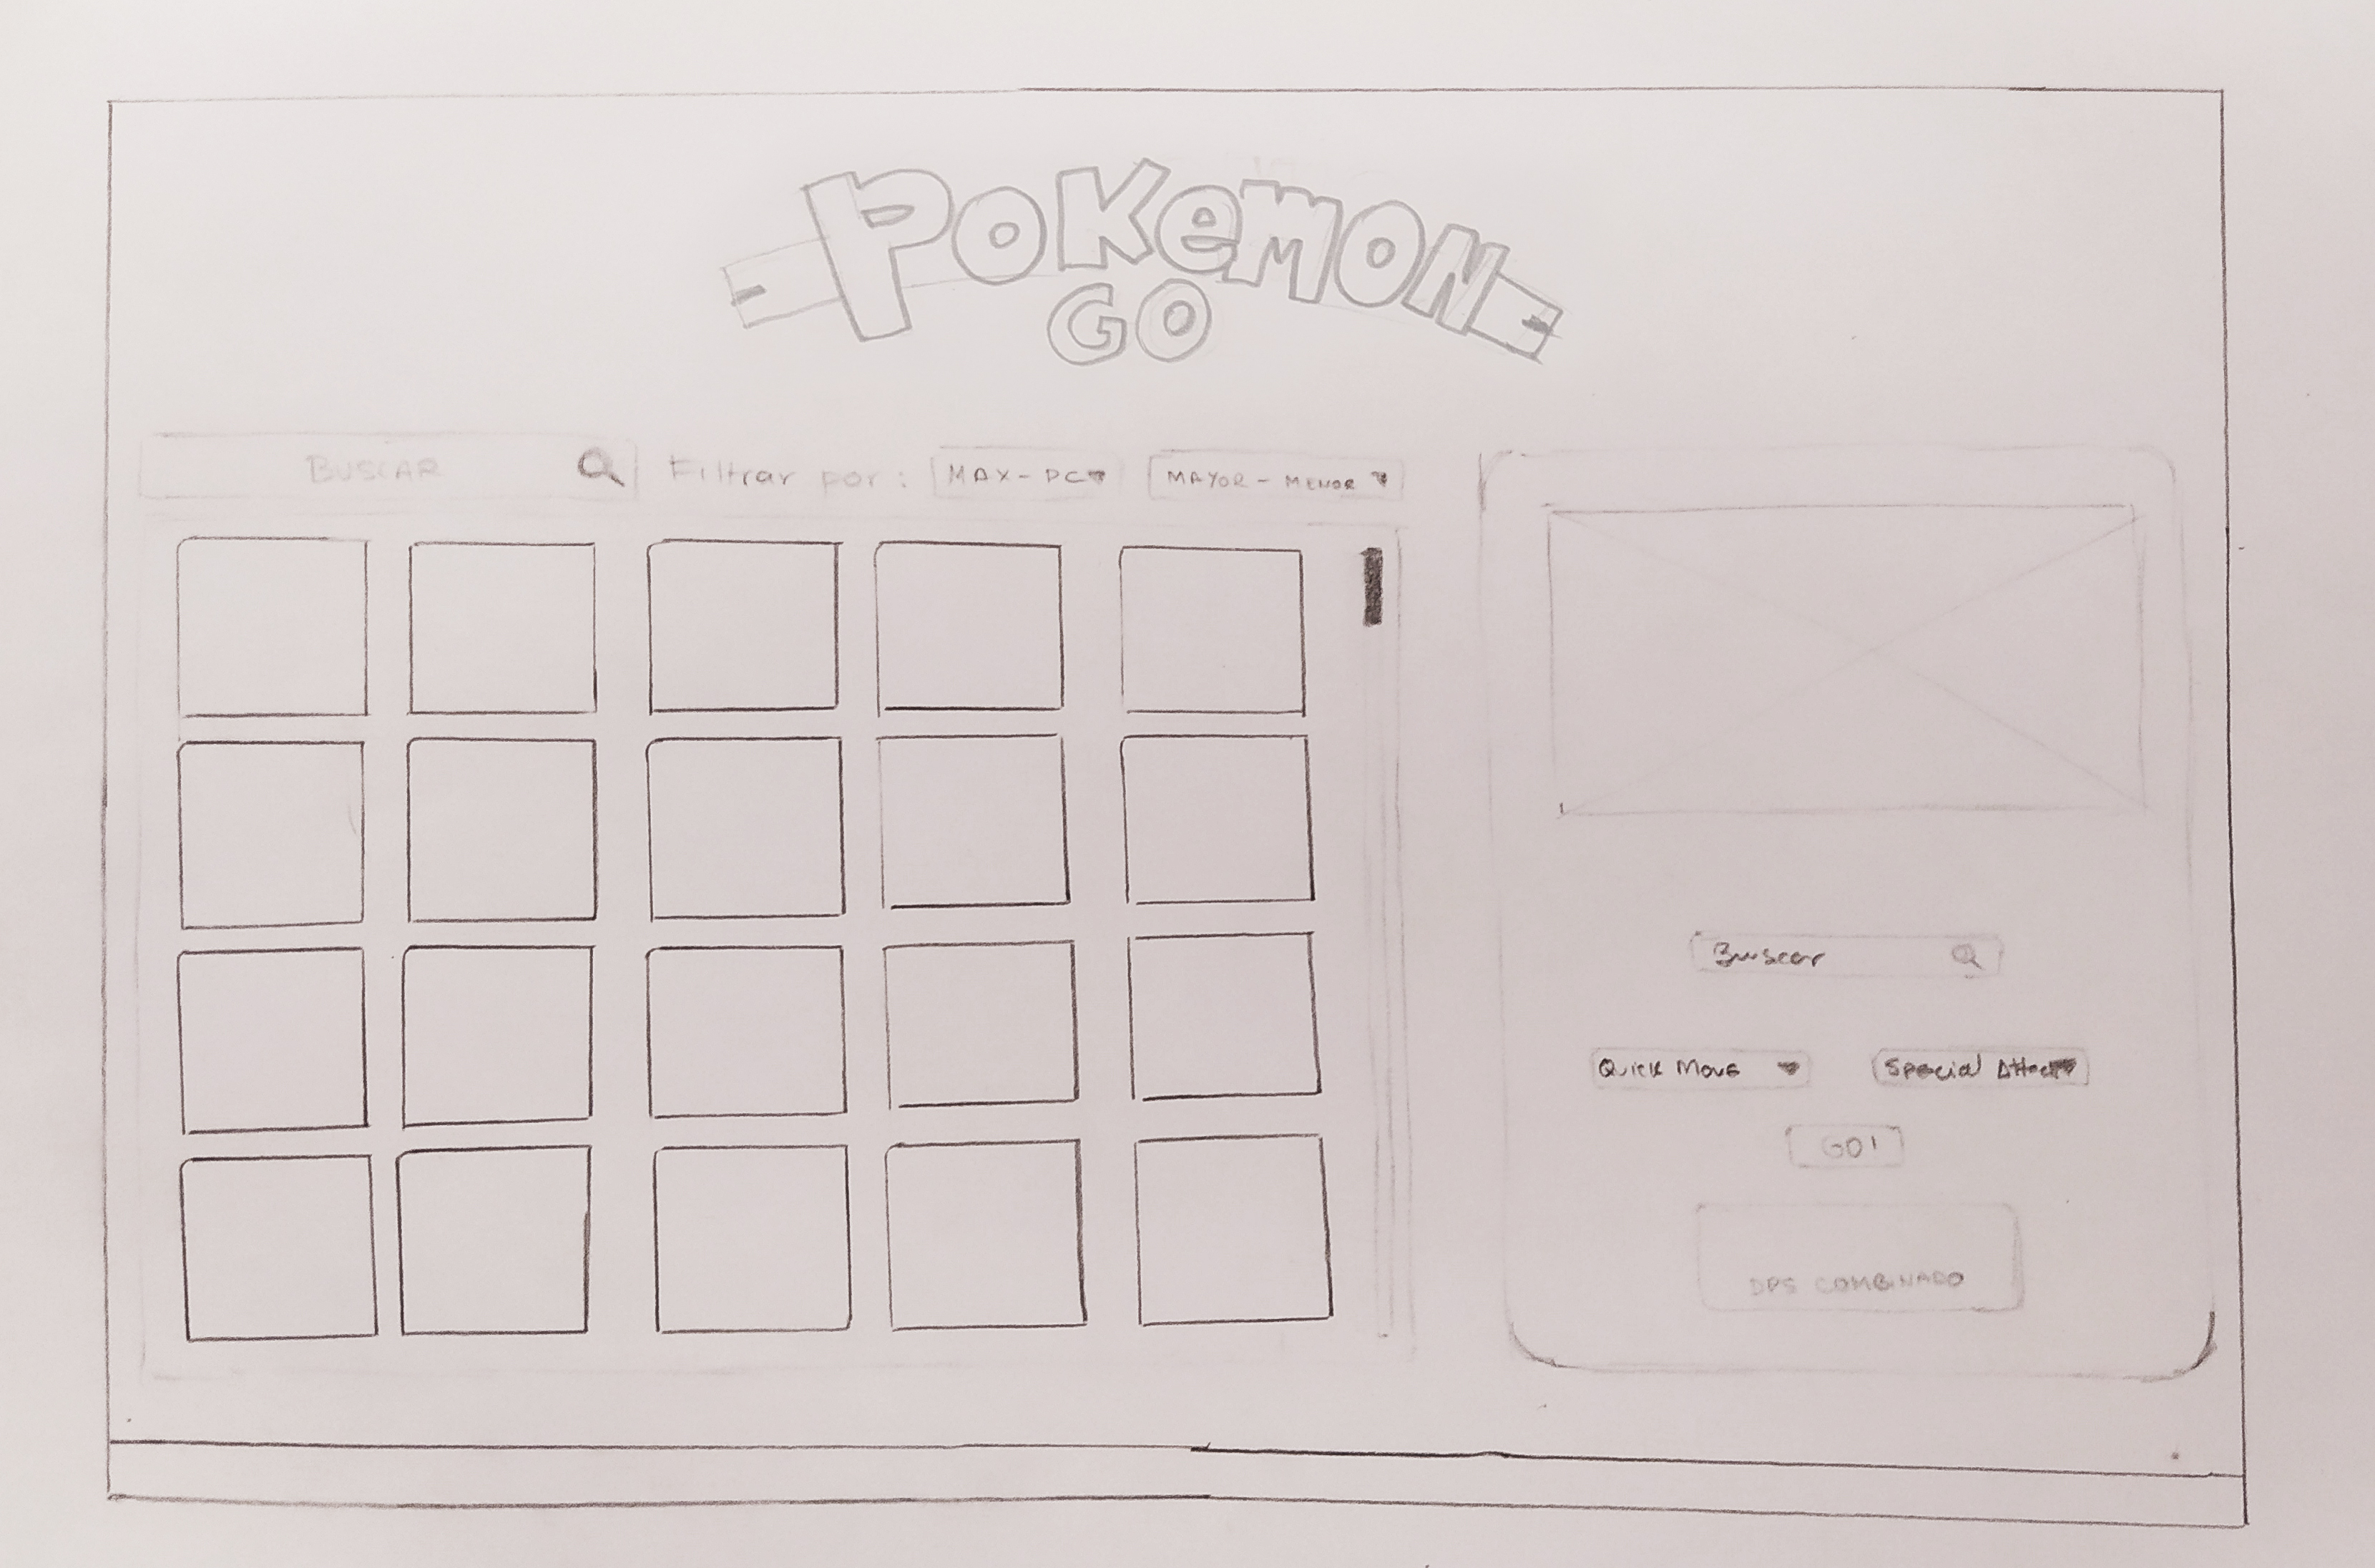 POKEMON
GO
BUSCAR
Filtrar por :
MAX-PC
MAYOR - MENOR
Buscar
Quick Move
Special Attack
GO!
DPS COMBINADO